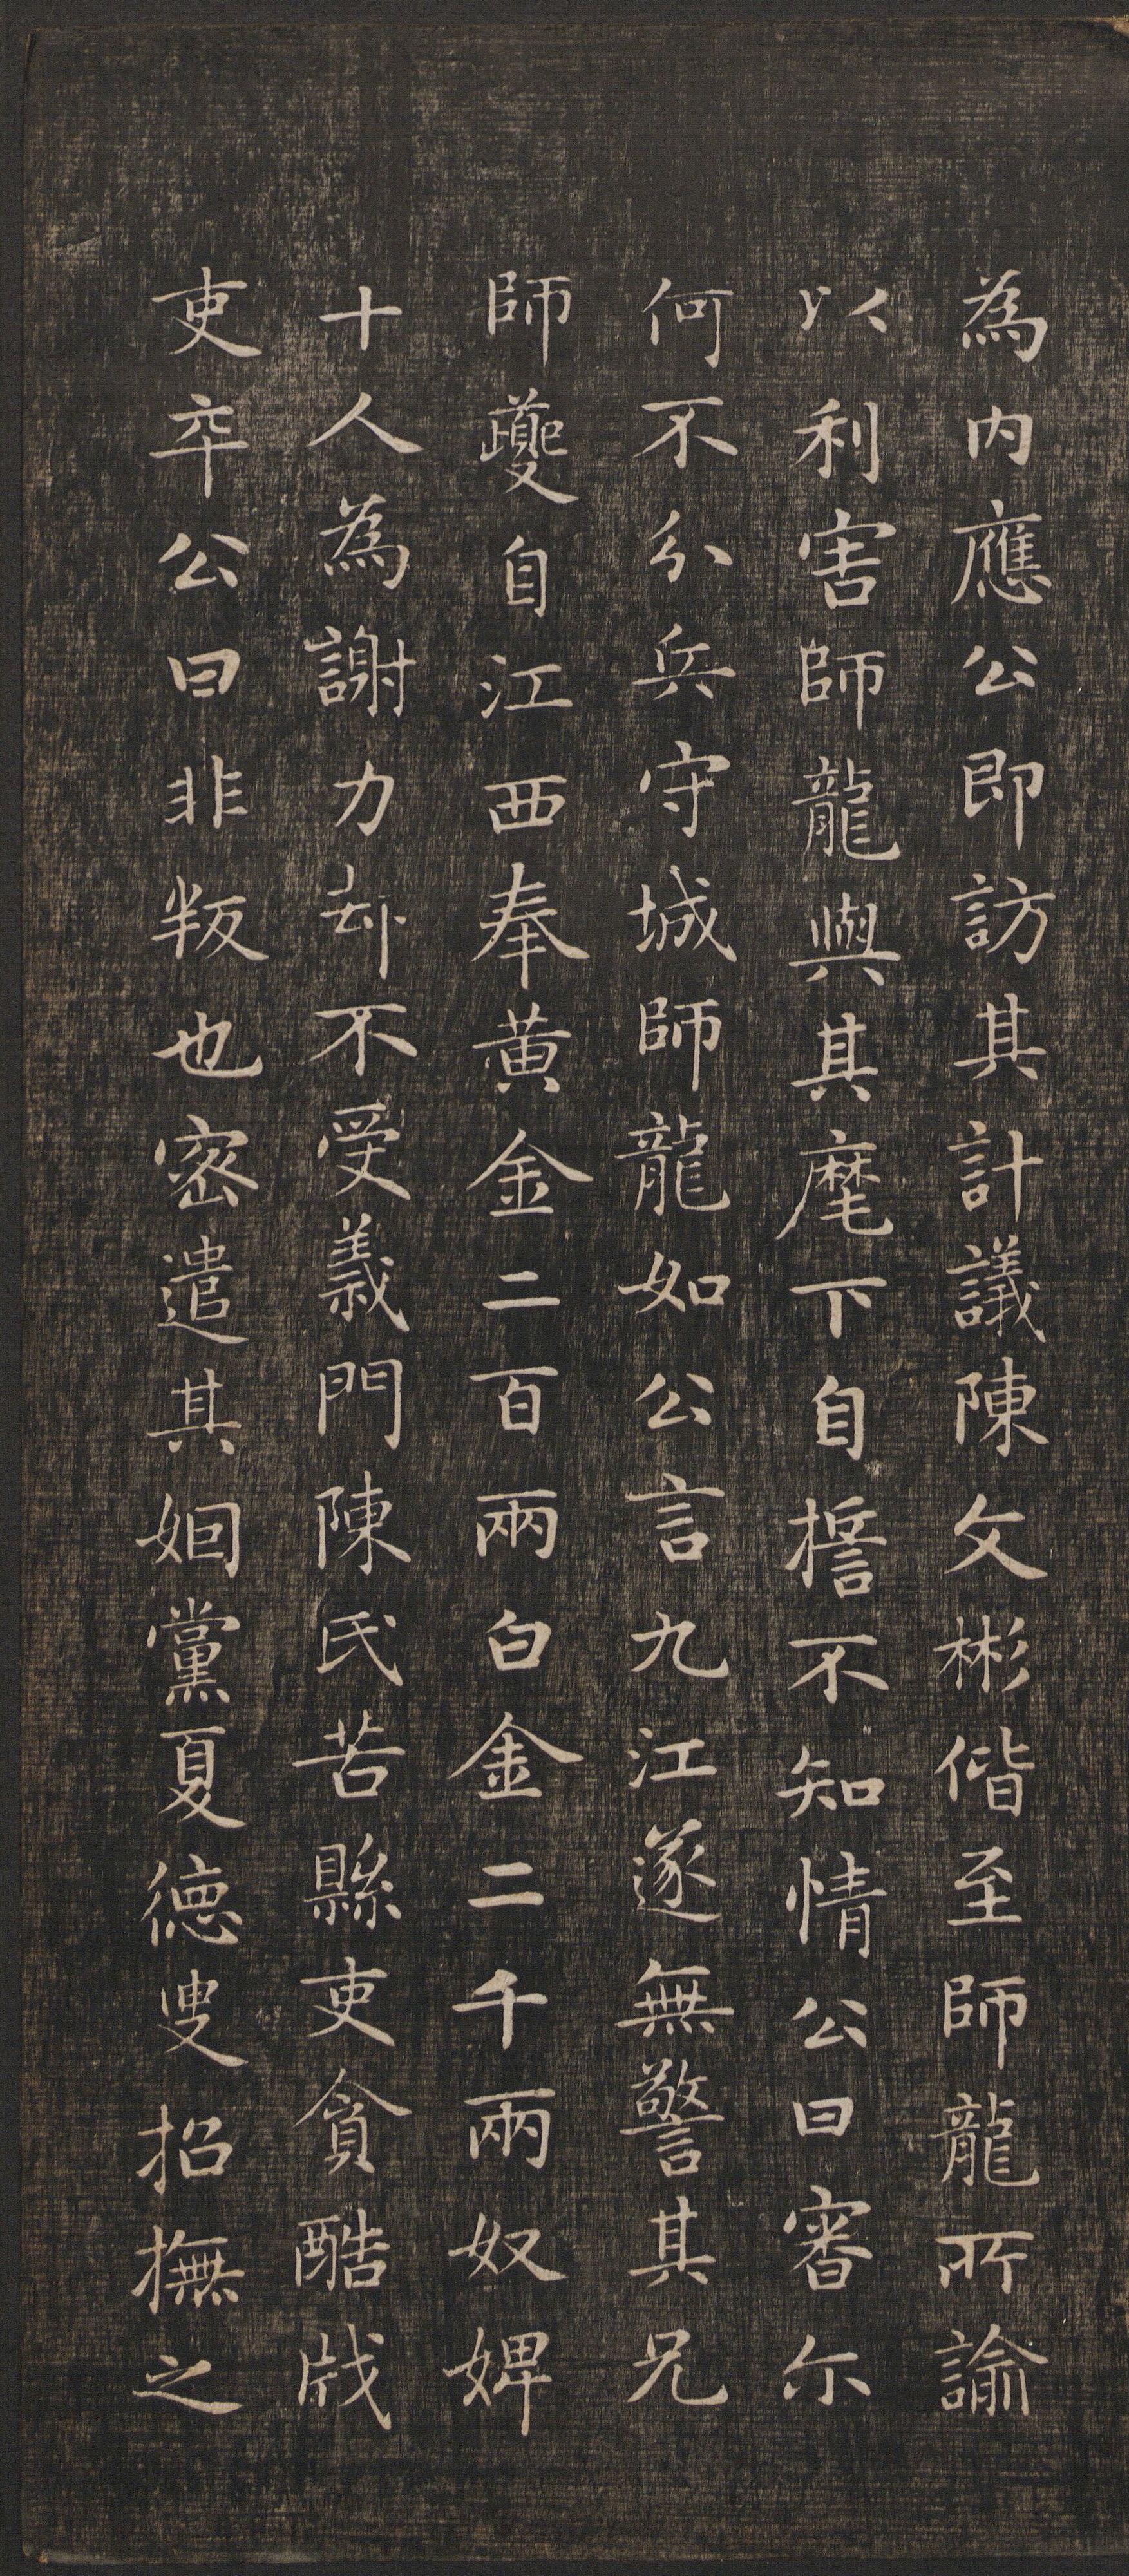 為内應公即訪其計議陳文彬偕至師龍所諭
以利害師龍與其麾下自擔不知情公曰審尓
何不分兵守城師龍如公言九江遂無警其兄
師夔自江西奉黄金二百兩白金二千兩奴婢
十人為謝力却不受義門陳氏苦縣吏貪酷戕
吏卒公曰非叛也密遣其姻黨夏德叟招撫之